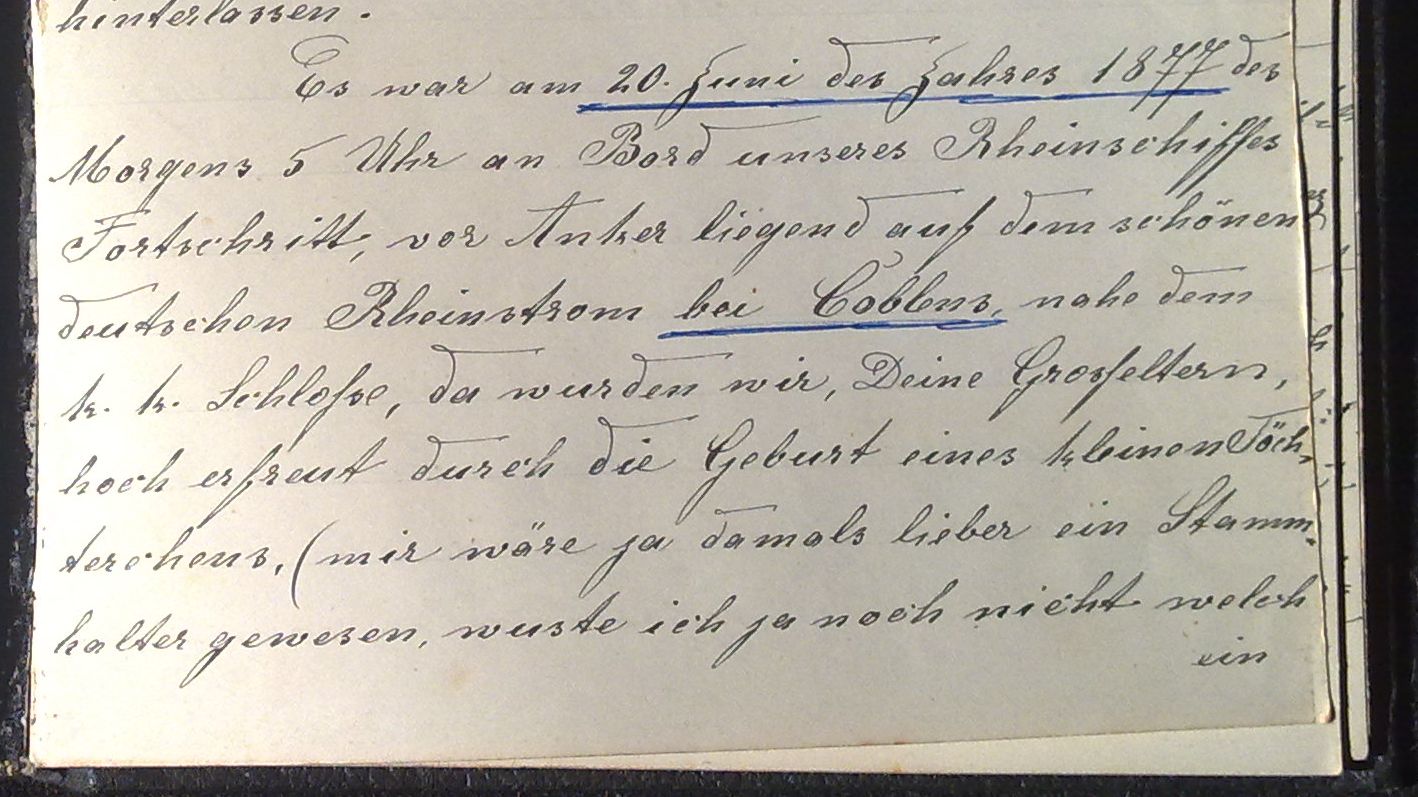 hinterlassen.
Es war am 20. Juni des Jahres 1877 des
Morgens 5 Uhr an Bord unseres Rheinschiffes
Fortschritt, vor Anker liegend auf dem schönen
deutschen Rheinstrom bei Coblens, nahe dem
k. k. Schloße, da wurden wir, Deine Grosseltern,
hoch erfreut durch die Geburt eines kleinen Töch-
terchens, (mir wäre ja damals lieber ein Stamm-
halter gewesen, wuste ich ja noch nicht welch
ein